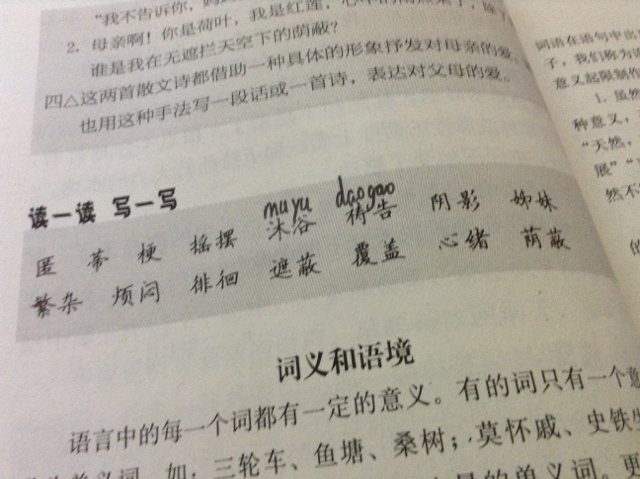 "我不告诉你，妈妈
2. 母亲啊！你是荷叶，我是红莲，心中的雨点来了，除了
谁是我在无遮拦天空下的荫蔽？
四△这两首散文诗都借助一种具体的形象抒发对母亲的爱。
也用这种手法写一段话或一首诗，表达对父母的爱。
读一读 写一写
mu yu daogao
匿 蒂 梗 摇摆 沐浴 祷告 阴影 姊妹
繁杂 烦闷 徘徊 遮蔽 覆盖 心绪 荫蔽
词义和语境
语言中的每一个词都有一定的意义。有的词只有一个意
单义词。如：三轮车、鱼塘、桑树；莫怀戚、史铁生
的单义词。更
词语在语句中出
子，我们称为语
意义起限制作
1. 虽然
种意义，
"天然，
展"
然不
的